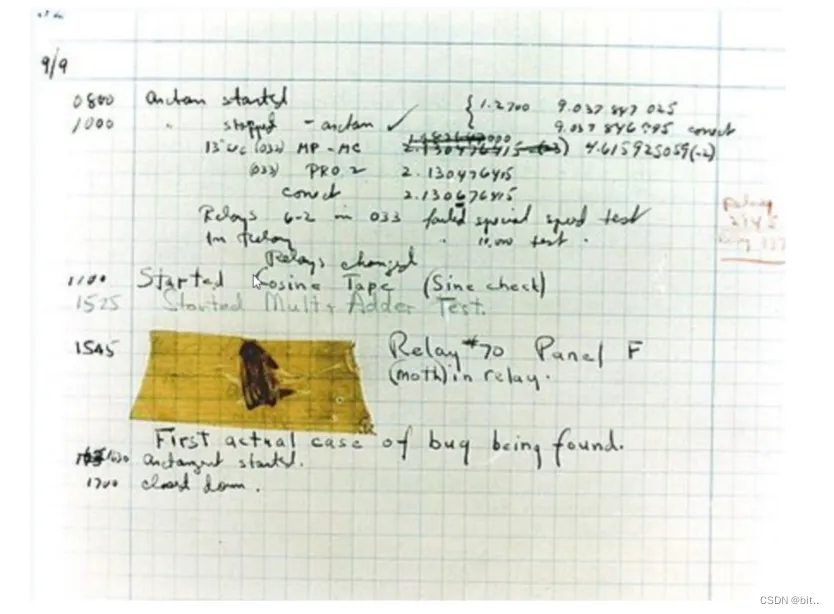 9/9
0800 arctan started { 1.2700 9.037 847 025
1000 " stopped - arctan ✓ 9.037 846 795 correct
13"uc (032) MP - MC 2.130476415 (-3) 4.615925059 (-2)
(033) PRO 2 2.130476415
correct 2.130676415
Relays 6-2 in 033 failed special speed test
In Relay " 10,000 test .
Relays changed
1100 Started Cosine Tape (Sine check)
1525 Started Mult + Adder Test.
1545 Relay #70 Panel F
(moth) in relay.
First actual case of bug being found.
1630 arctangent started.
1700 closed down.
Relay
CSDN @bit..